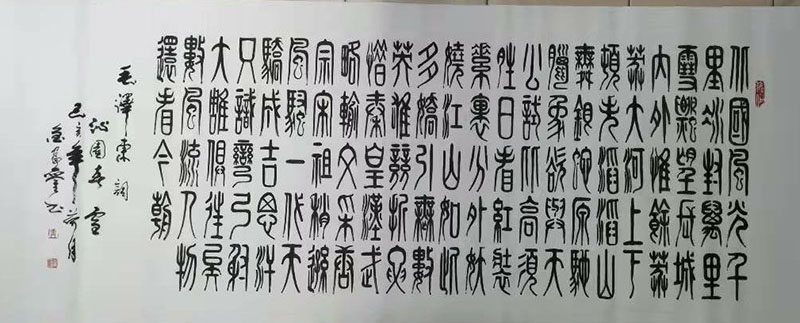 北國風光千
里冰封萬里
雪飄望長城
內外惟餘莽
莽大河上下
頓失滔滔山
舞銀蛇原馳
臘象欲與天
公試比高須
晴日看紅裝
素裹分外妖
嬈江山如此
多嬌引無數
英雄競折腰
惜秦皇漢武
略輸文采唐
宗宋祖稍遜
風騷一代天
驕成吉思汗
只識彎弓射
大雕俱往矣
數風流人物
還看今朝
毛澤東詞
沁園春雪
己亥年荷月
書